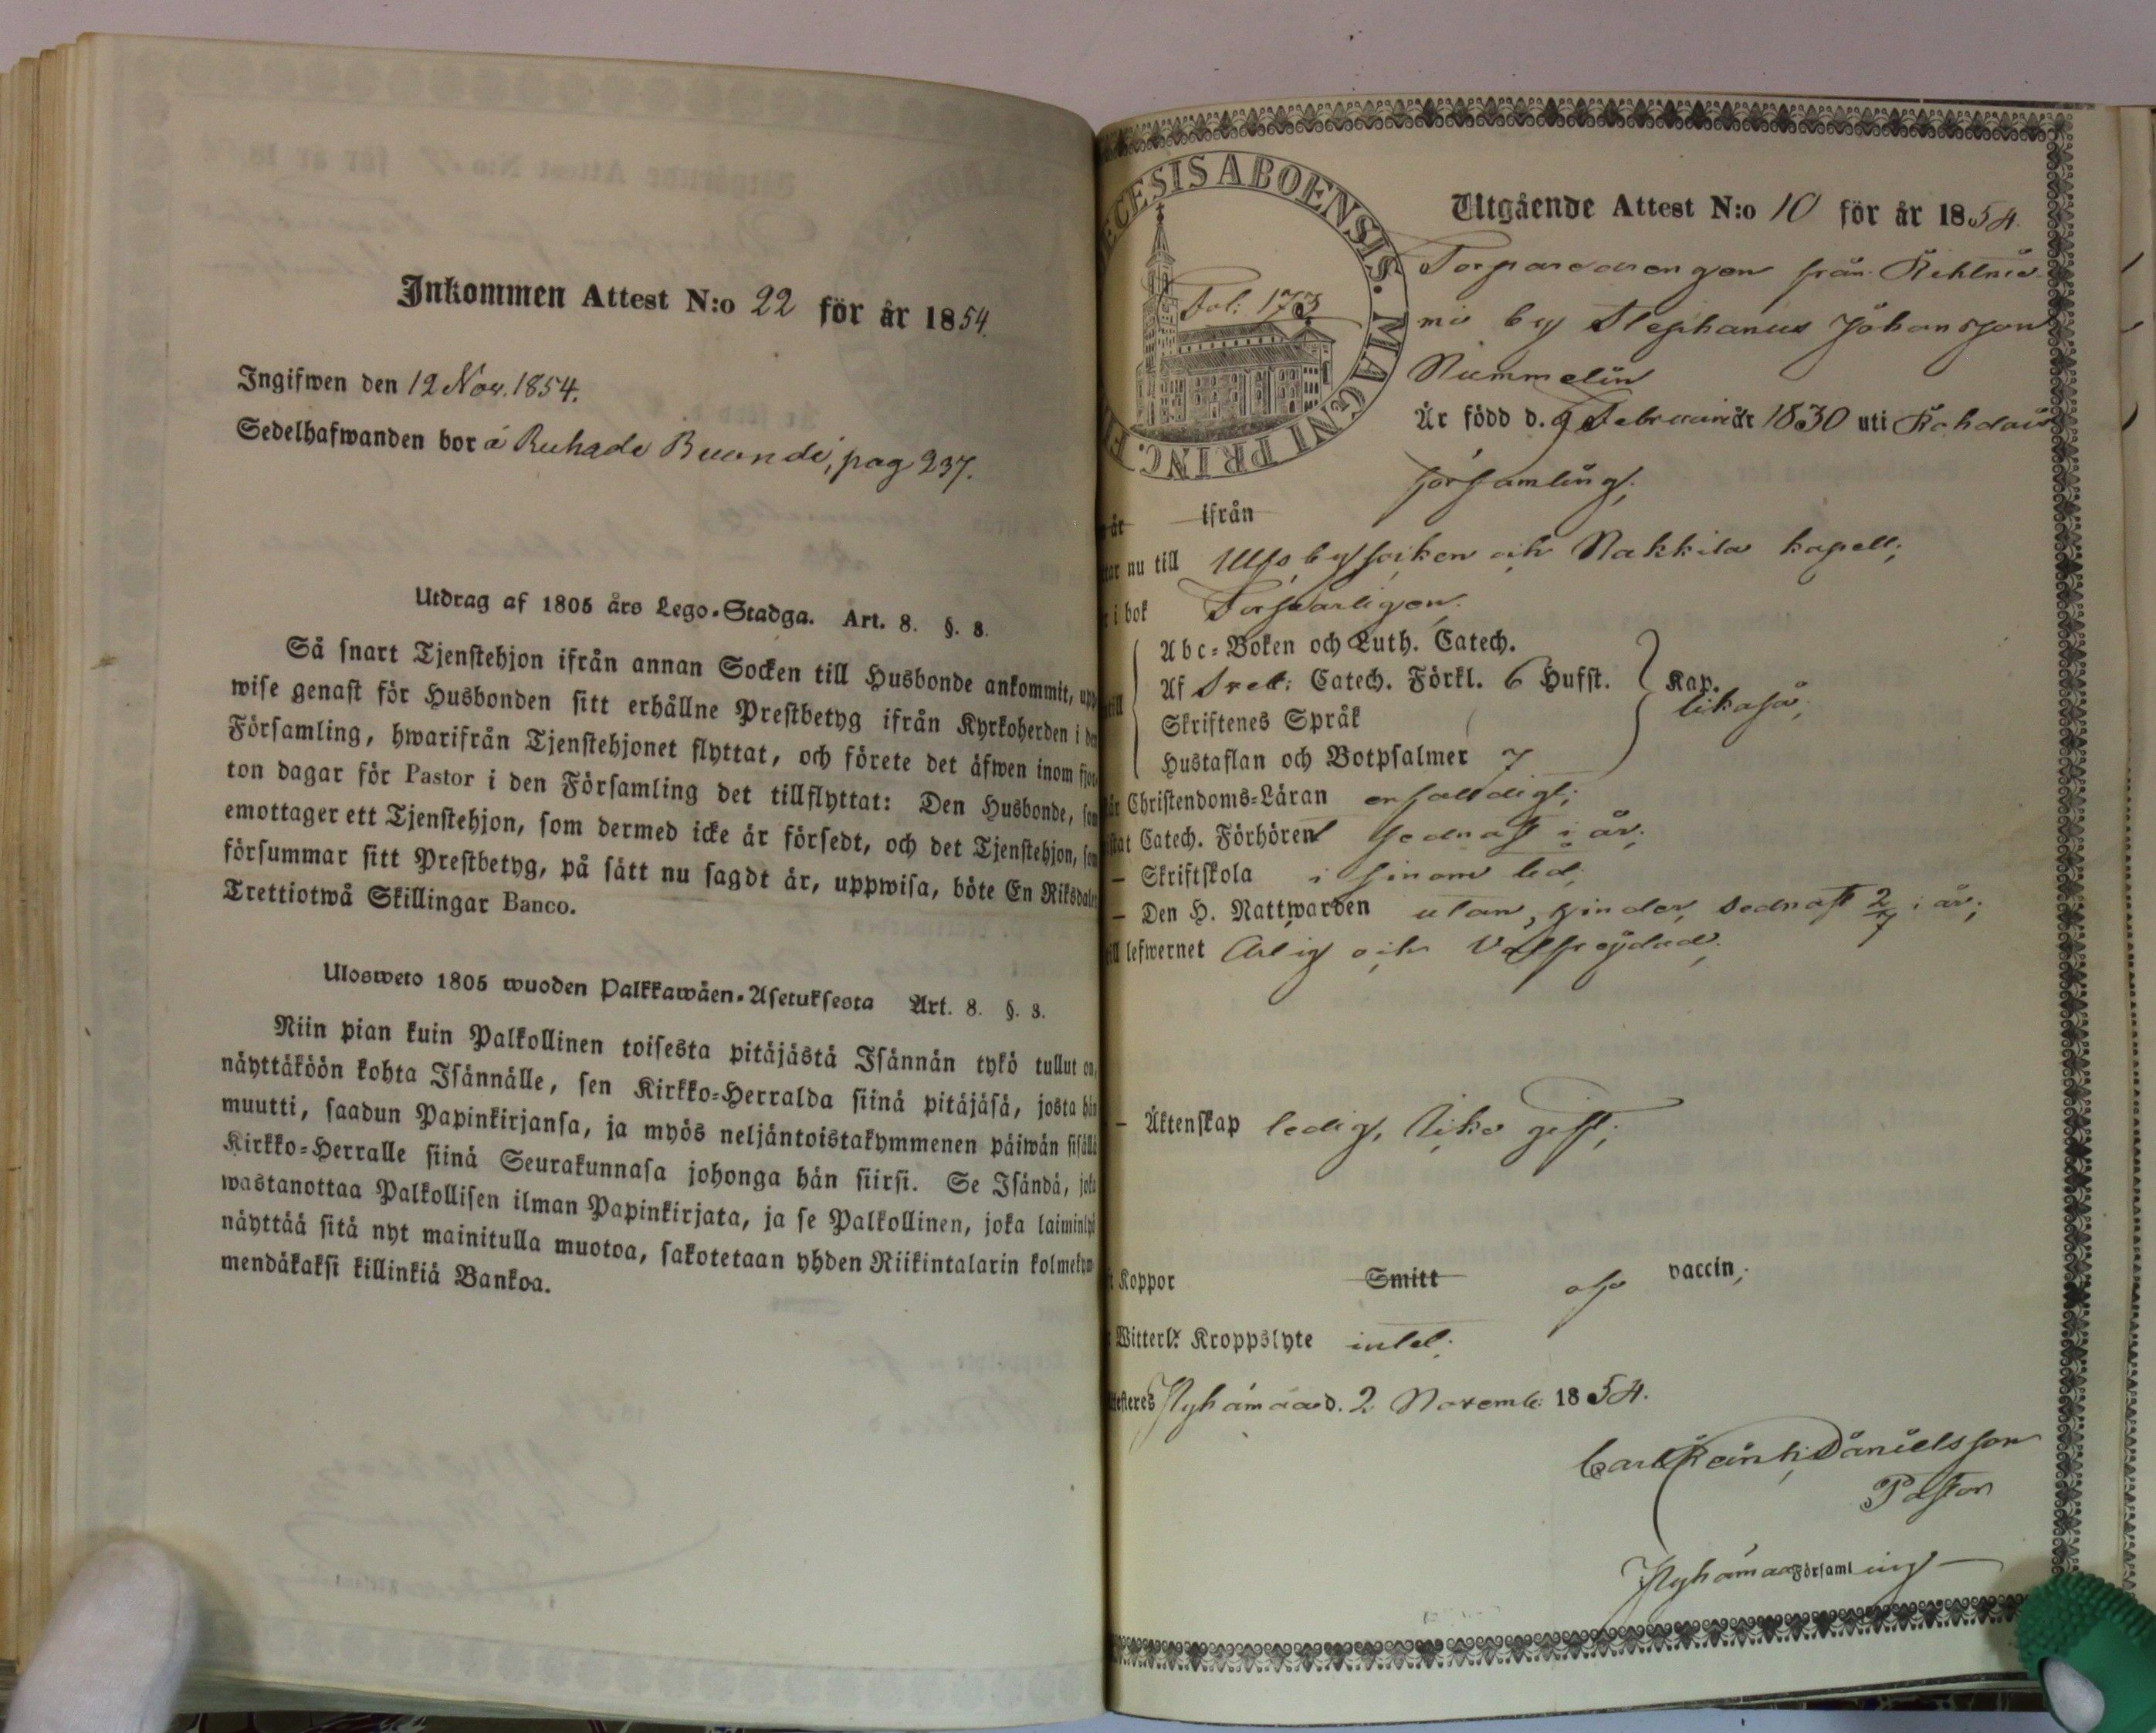 Inkommen Attest N:o 22 för år 1854.
Ingifwen den 12 Nov. 1854.
Sedelhafwanden bor á Ruhade Buandi, pag 237.
Utdrag af 1805 års Lego-Stadga. Art. 8. §. 8.
Så snart Tjenstehjon ifrån annan Socken till Husbonde ankommit, upp
wise genast för Husbonden sitt erhållne Prestbetyg ifrån Kyrkoherden i den
Församling, hwarifrån Tjenstehjonet flyttat, och förete det äfwen inom fjor-
ton dagar för Pastor i den Församling det tillflyttat: Den Husbonde, som
emottager ett Tjenstehjon, som dermed icke är försedt, och det Tjenstehjon, som
försummar sitt Prestbetyg, på sätt nu sagdt är, uppwisa, böte En Riksdaler
Trettiotwå Skillingar Banco.
Ulosweto 1805 wuoden Palkkawäen-Asetuksesta Art. 8. §. 8.
Niin pian kuin Palkollinen toisesta pitäjästä Isännän tykö tullut on,
näyttäköön kohta Isännälle, sen Kirkko-Herralda siinä pitäjäsä, josta hän
muutti, saadun Papinkirjansa, ja myös neljäntoistakymmenen päiwän sisällä
Kirkko-Herralle siinä Seurakunnasa johonga hän siirsi. Se Isändä, joka
wastanottaa Palkollisen ilman Papinkirjata, ja se Palkollinen, joka laiminlyö
näyttää sitä nyt mainitulla muotoa, sakotetaan yhden Riikintalarin kolmekym-
mendäkaksi killinkiä Bankoa.
ECESIS ABOENSIS. MAGNI PRINC. F
Fol: 173
Utgående Attest N:o 10 för år 1854.
Torparedrengen från
mi by Stephanus Johansson
Nummelin
Är född d. 9 Februari år 1830 uti
församling;
år ifrån
tar nu till Ulfsby socken och Nakkila kapell;
i bok Forsvarligen.
Abc-Boken och Luth. Catech.
till Af Catech. Förkl. 6 Hufst. Kap.
Skriftenes Språk likaså;
Hustaflan och Botpsalmer 7
Christendoms-Läran enfaldigt;
Catech. Förhören sednast i år;
– Skriftskola i sinom tid;
– Den H. Nattwarden utan hinder, sednast 2/7 i år;
till lefwernet Ärlig och Välfrejdad.
– Äktenskap ledig, icke gift;
Koppor Smitt af vaccin;
Witterl: Kroppslyte intet.
Hyhämaa d. 2 Novemb: 1854.
Carl Danielsson
Pastor
i Hyhämaa Församling